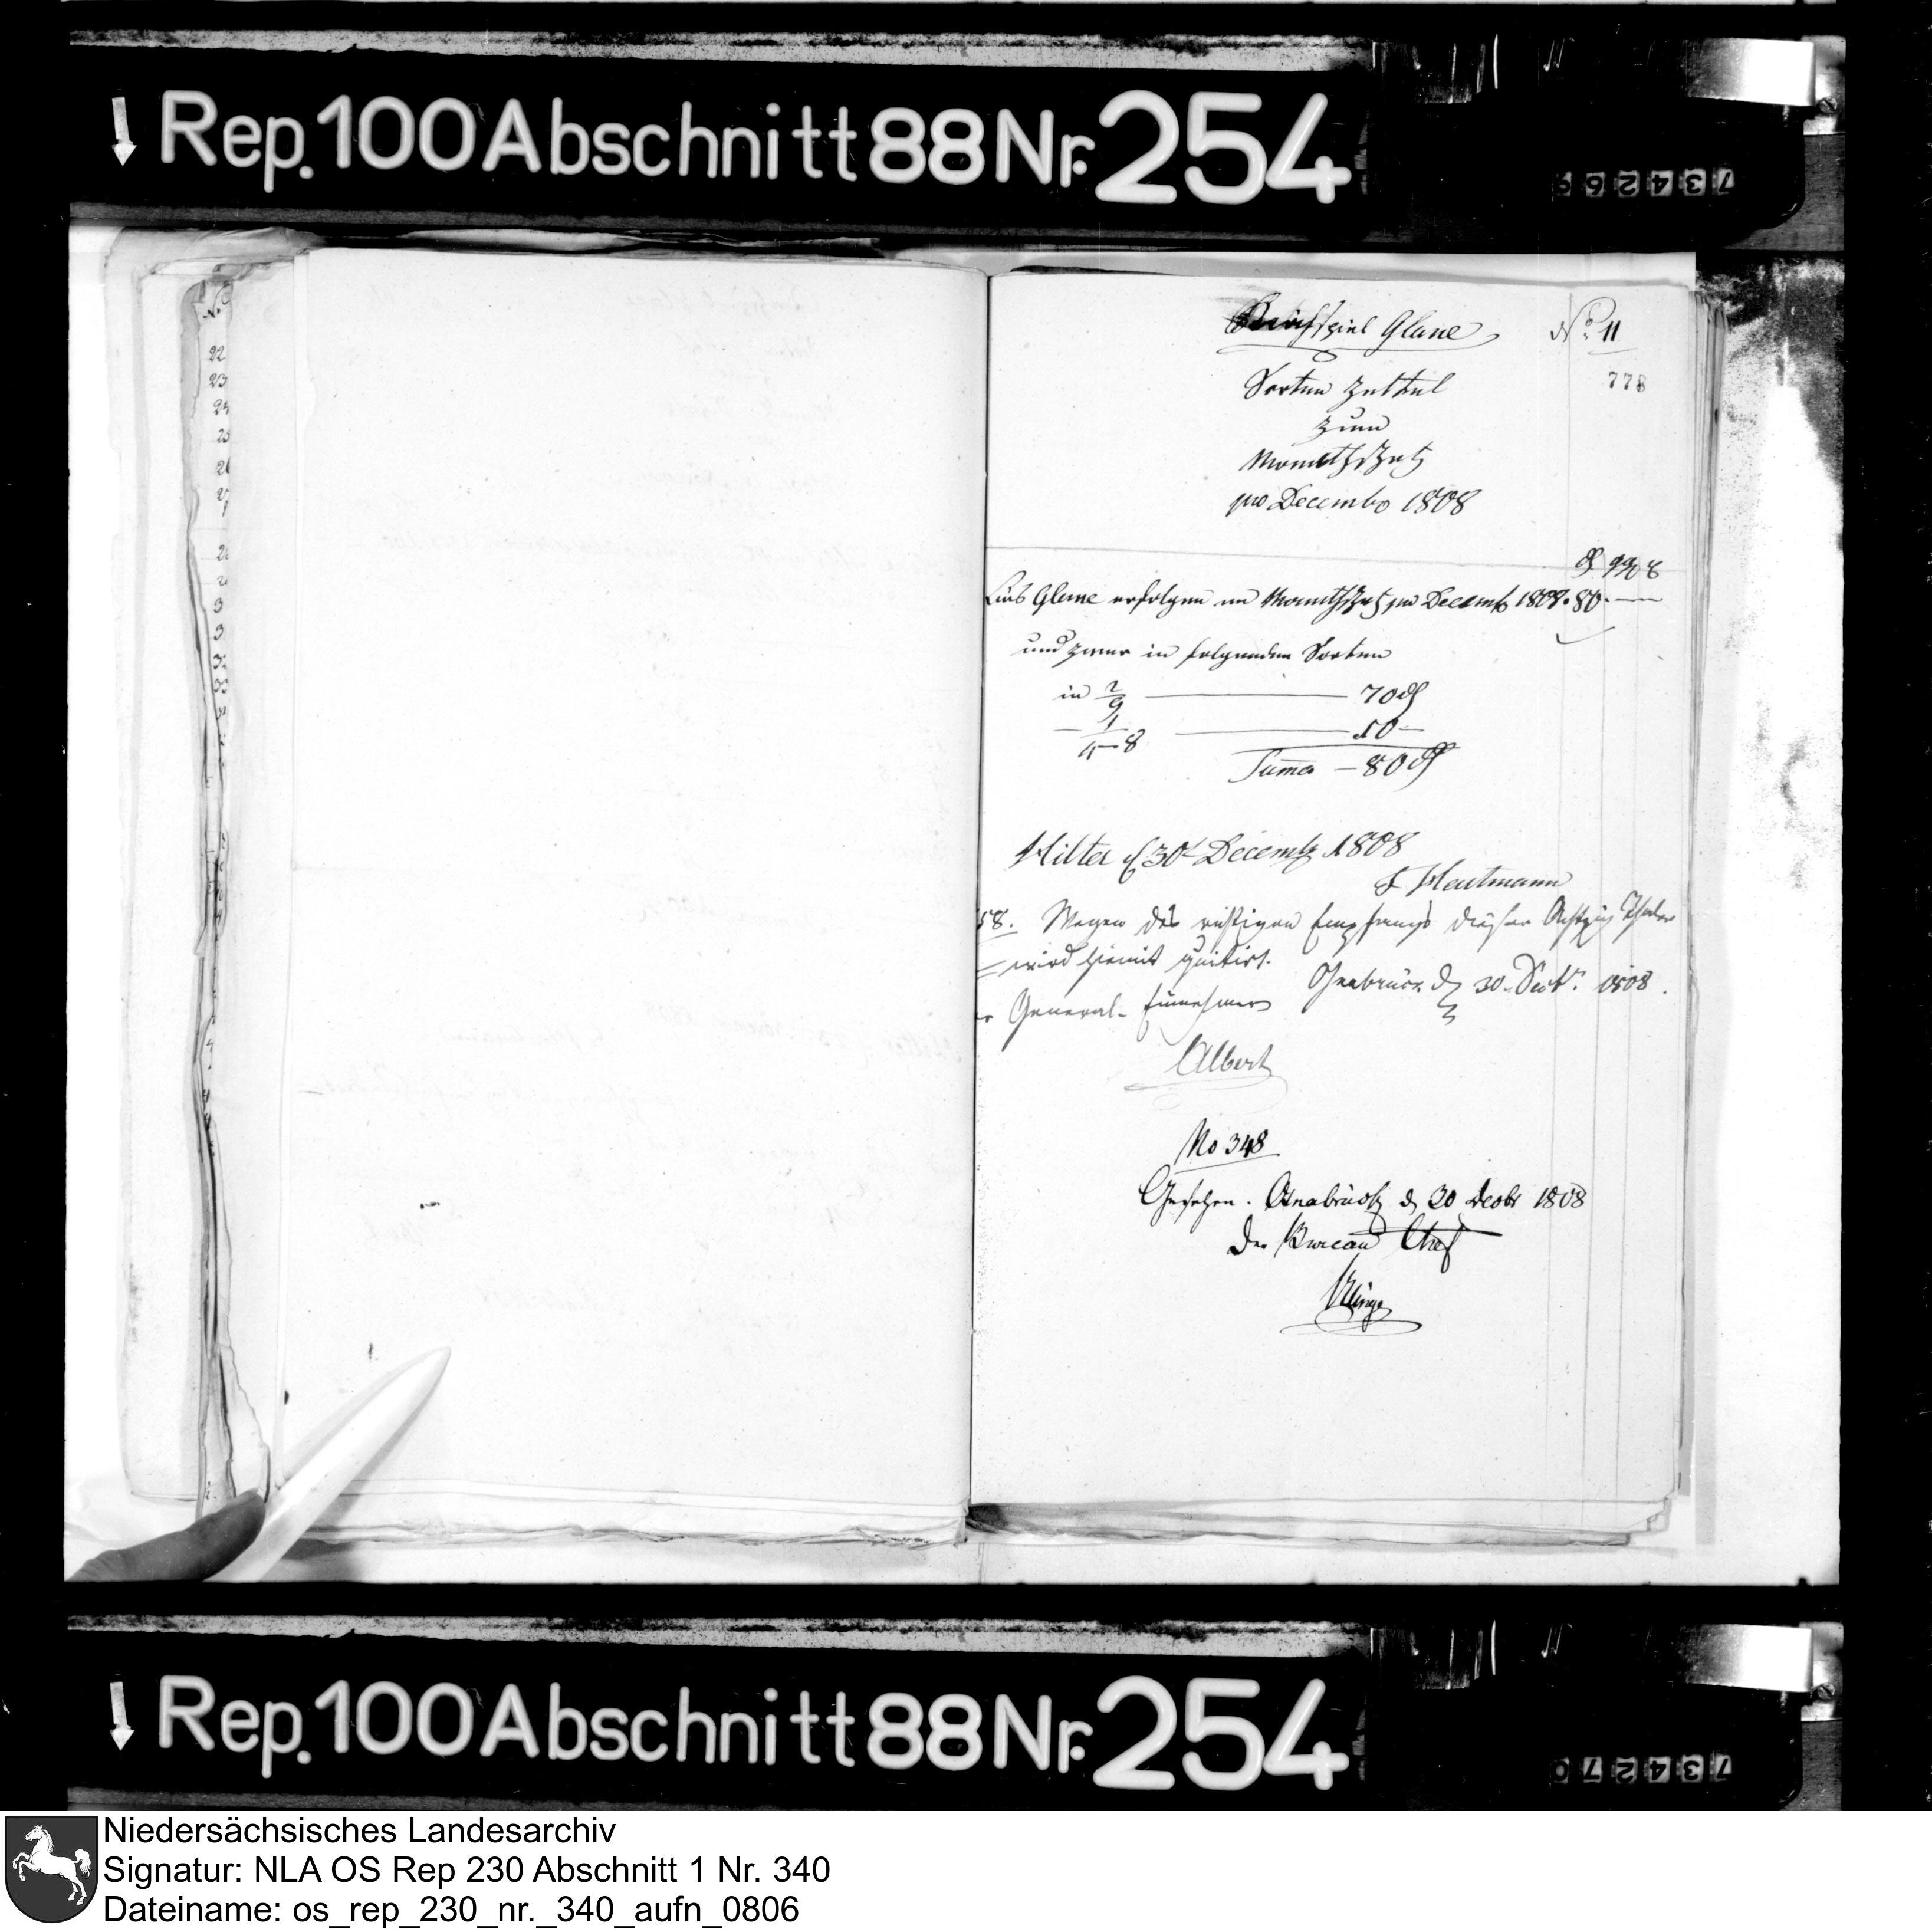 Rep. 100 Abschnitt 88 Nr. 254
734269
No
22
23
24
25
Kirchspiel Glane
No. 11
778
Sorten Zettel
zum
MonathsSchatz
pro Decembr 1808
Glane erfolgen an MonathsSchatz pro Decembr 1808. 80. — —
und zwar in folgenden Sorten
in 2/3 — 70
— 10 —
Summa — 80
Hilter d 30t Decembr 1808
Hautmann
58. Wegen des richtigen Empfangs dieser Achtzig Thaler
wird hiemit quitirt.
Osnabrück d 30. Decbr. 1808.
General-Einnehmer
Albert
No 348
Gesehen. Osnabrück d 30 Decbr 1808
Der Bureau Chef
Rep. 100 Abschnitt 88 Nr. 254
734270
Niedersächsisches Landesarchiv
Signatur: NLA OS Rep 230 Abschnitt 1 Nr. 340
Dateiname: os_rep_230_nr._340_aufn_0806